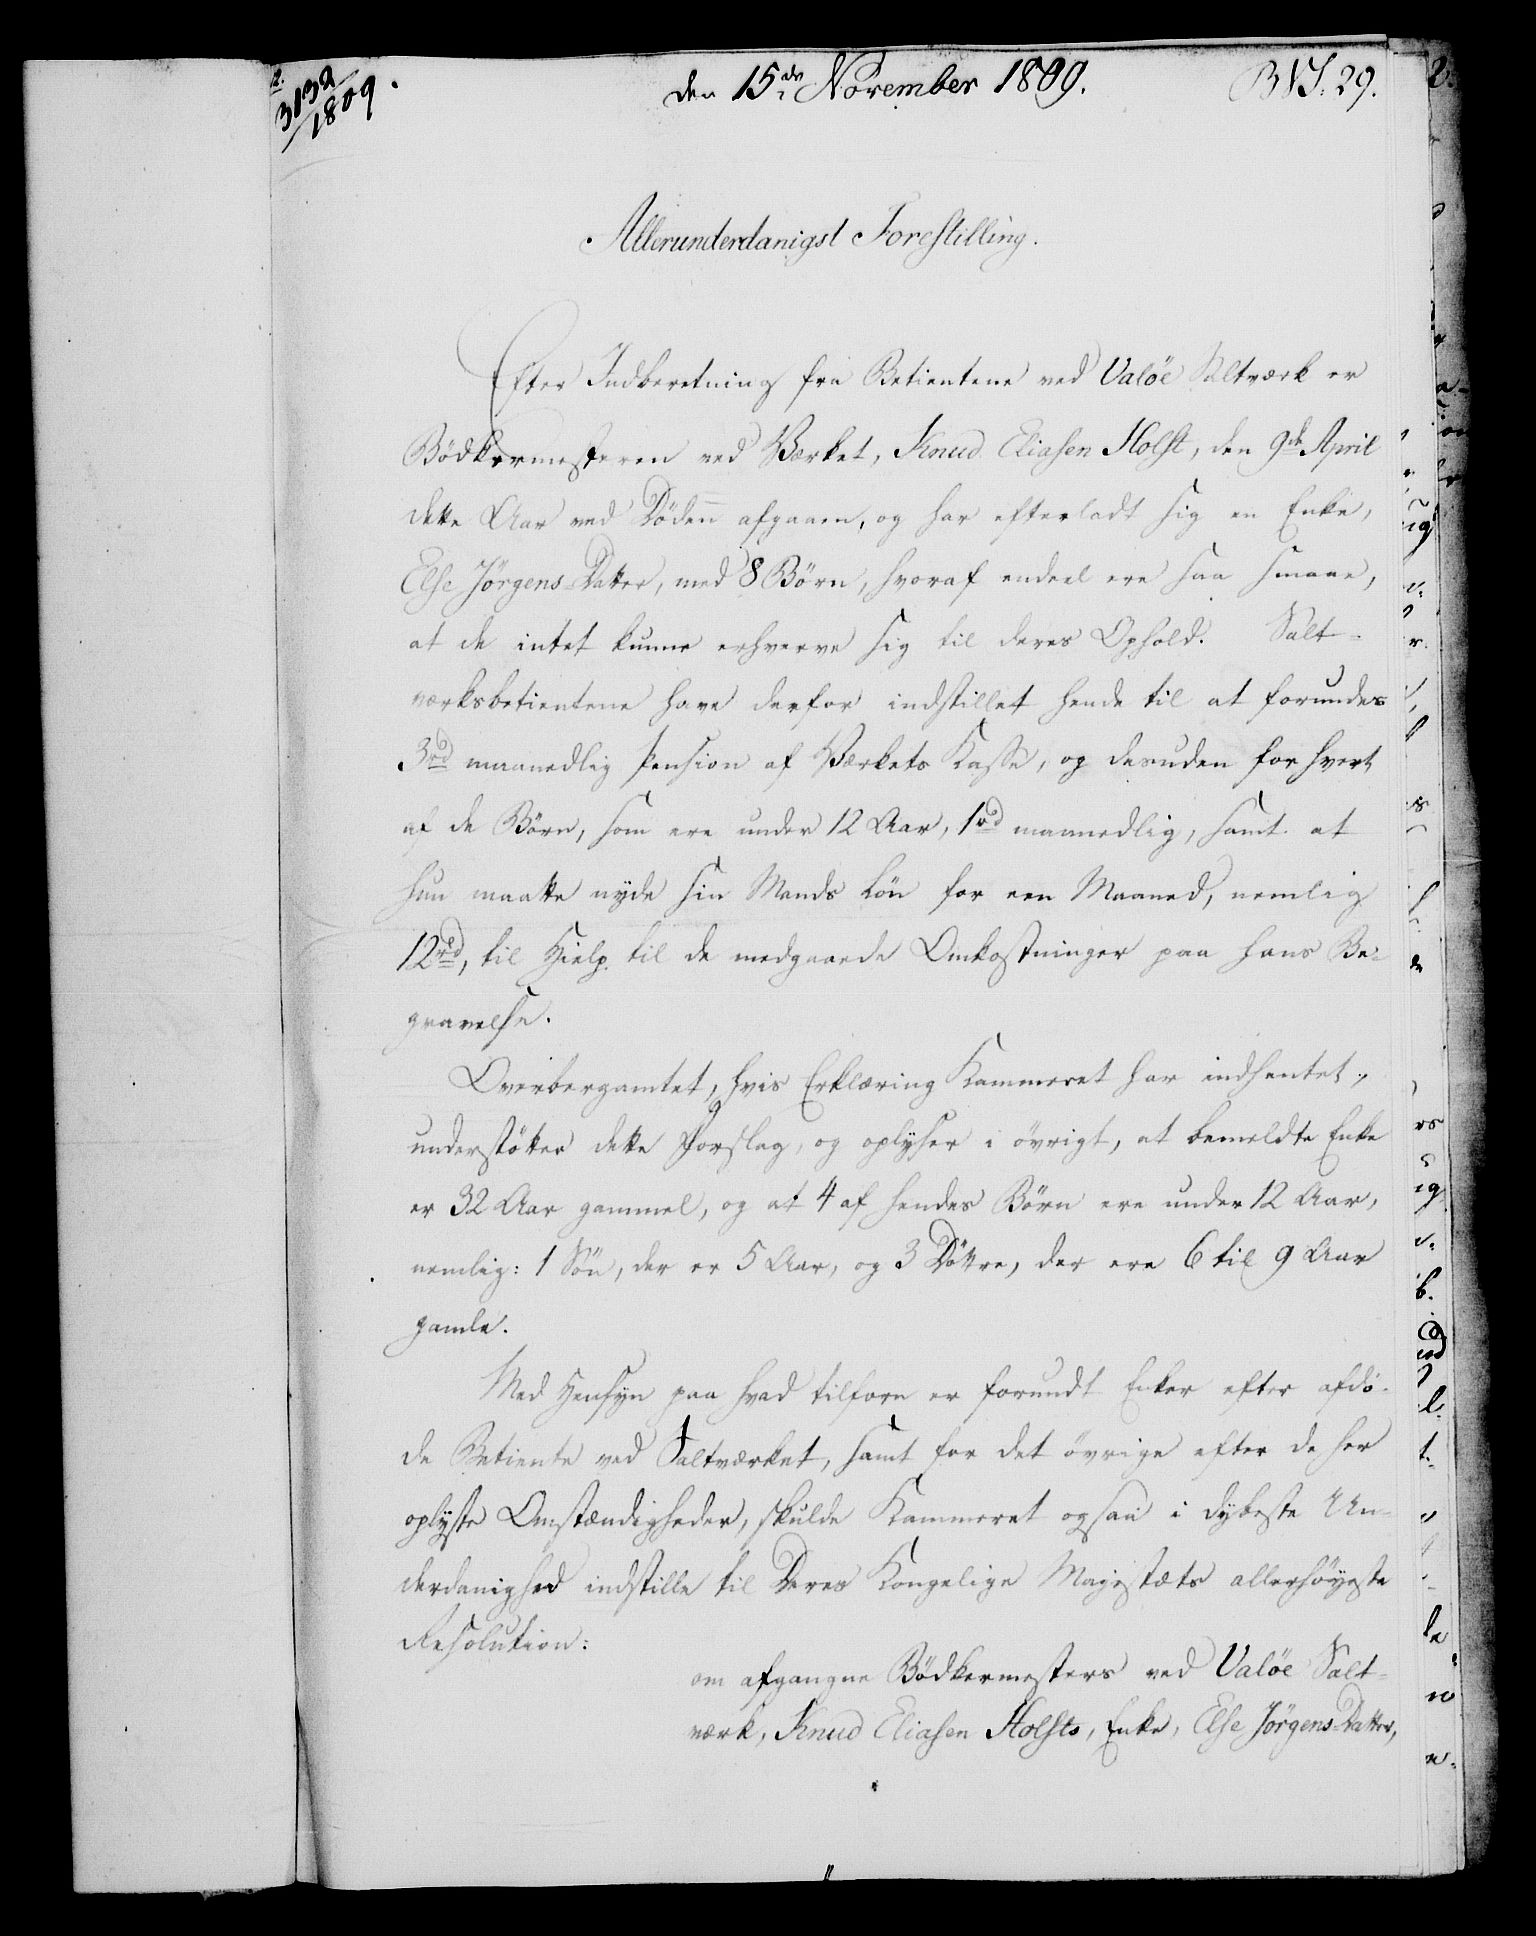 3132/1809.
den 15de November 1809.
BVS. 29.
Allerunderdanigst Forestilling.
Efter Indberetning fra Betientene ved Valøe Saltværk er
Bødkermesteren ved Værket, Knud Eliasen Holst, den 9de April
dette Aar ved Døden afgaaen, og har efterladt sig en Enke,
Else Jörgens-Datter, med 8 Börn, hvoraf endeel ere saa smaae,
at de intet kunne erhverve sig til deres Ophold. Salt-
værksbetientene have derfor indstillet hende til at forundes
3rd maanedlig Pension af Værkets Kasse, og desuden for hvert
af de Börn, som ere under 12 Aar, 1rd maanedlig, samt at
hun maatte nyde sin Mands Lön for een Maaned, nemlig
12rd, til Hielp til de medgaaede Omkostninger paa hans Be-
gravelse.
Overbergamtet, hvis Erklæring Kammeret har indhentet,
understötter dette Forslag, og oplyser i övrigt, at bemeldte Enke
er 32 Aar gammel, og at 4 af hendes Börn ere under 12 Aar,
nemlig: 1 Sön, der er 5 Aar, og 3 Döttre, der ere 6 til 9 Aar
gamle.
Med Hensyn paa hvad tilforn er forundt Enker efter afdö-
de Betiente ved Saltværket, samt for det övrige efter de her
oplyste Omstændigheder, skulde Kammeret ogsaa i dybeste Un-
derdanighed indstille til Deres Kongelige Majestæts allerhöyeste
Resolution:
om afgangne Bödkermesters ved Valöe Salt-
værk, Knud Eliasen Holsts, Enke, Else Jörgens-Datter,